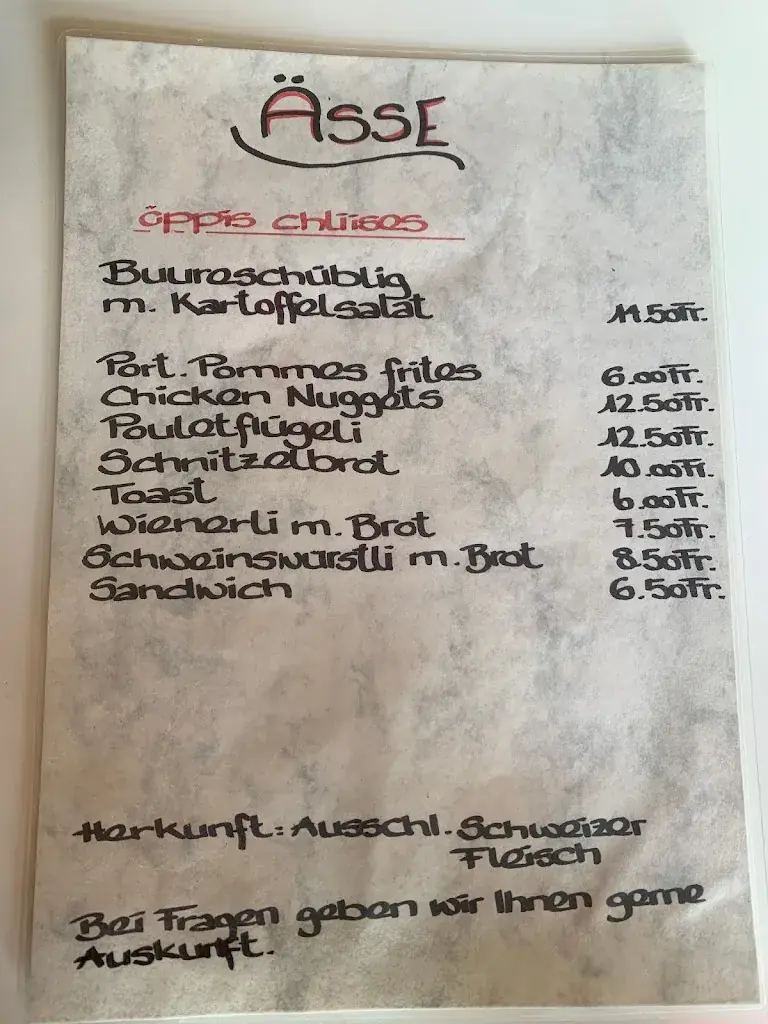 ÄSSE
öppis chliises
Buureschüblig
m. Kartoffelsalat 11.50Fr.
Port. Pommes frites 6.00Fr.
Chicken Nuggets 12.50Fr.
Pouletflügeli 12.50Fr.
Schnitzelbrot 10.00Fr.
Toast 6.00Fr.
Wienerli m. Brot 7.50Fr.
Schweinswürstli m. Brot 8.50Fr.
Sandwich 6.50Fr.
Herkunft: Ausschl. Schweizer
Fleisch
Bei Fragen geben wir Ihnen gerne
Auskunft.